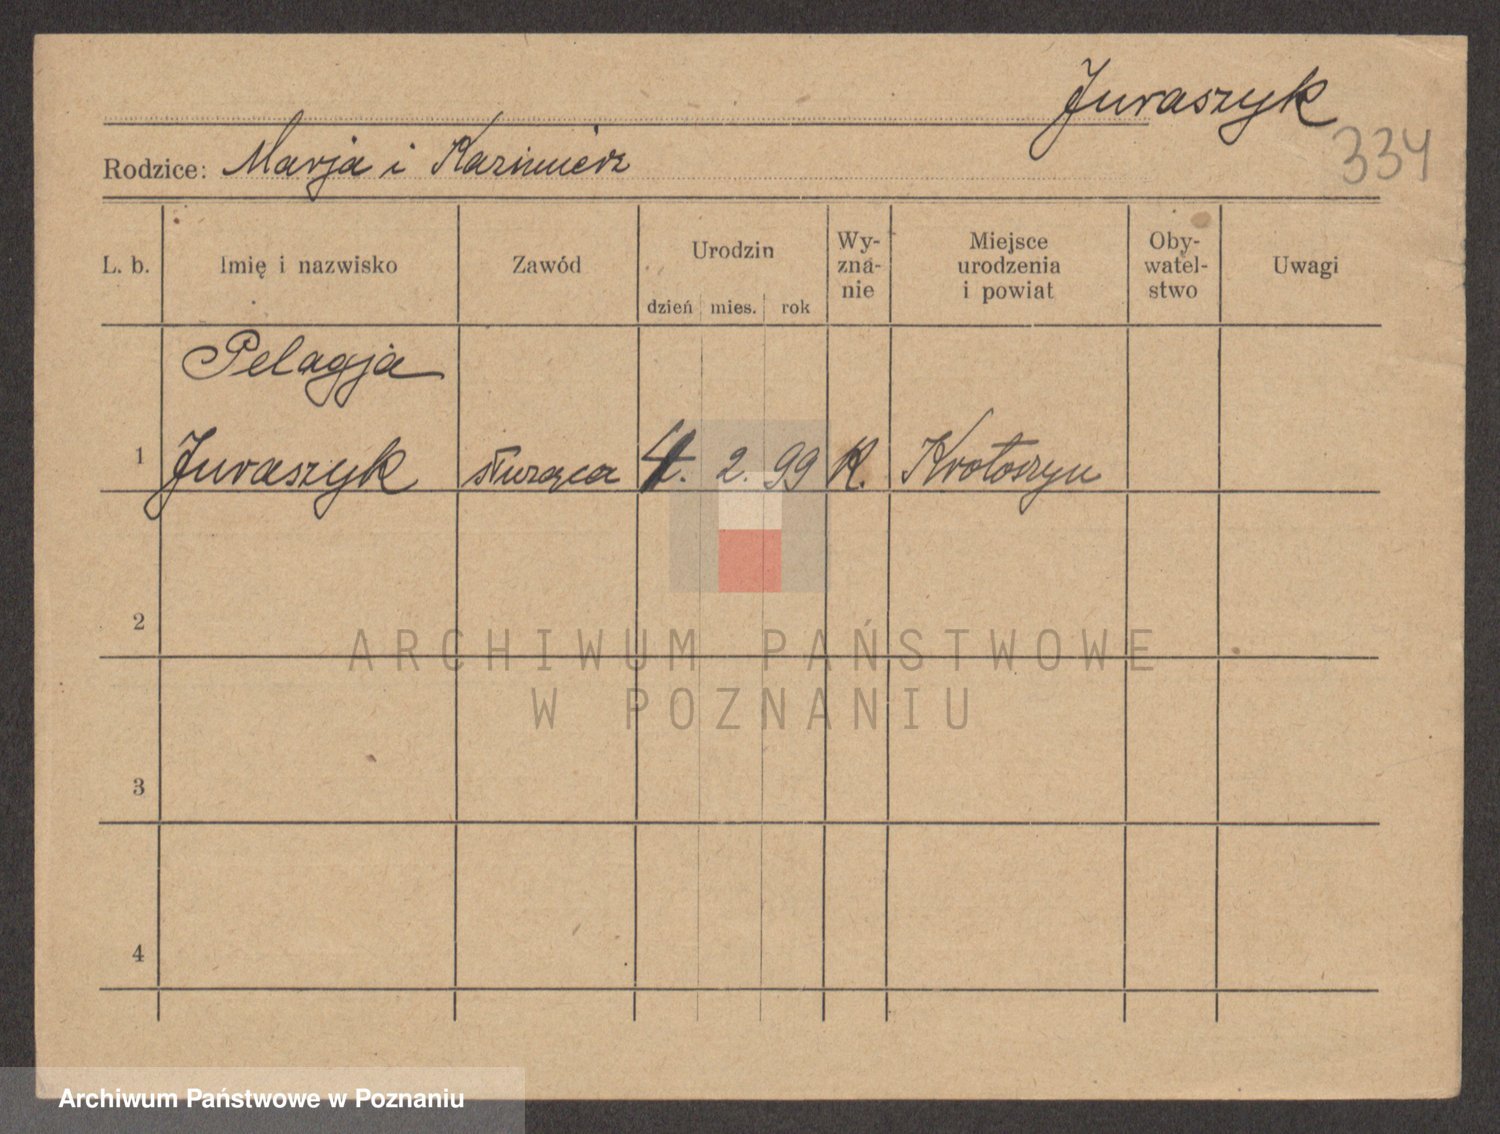 Juraszyk
334
Rodzice: Marja i Kazimierz
L. b. Imię i nazwisko Zawód Urodzin dzień mies. rok Wy-zna-nie Miejsce urodzenia i powiat Oby-watel-stwo Uwagi
Pelagja
1 Juraszyk służąca 4. 2. 99 K. Krotoszyn
2
ARCHIWUM PAŃSTWOWE
W POZNANIU
3
4
Archiwum Państwowe w Poznaniu